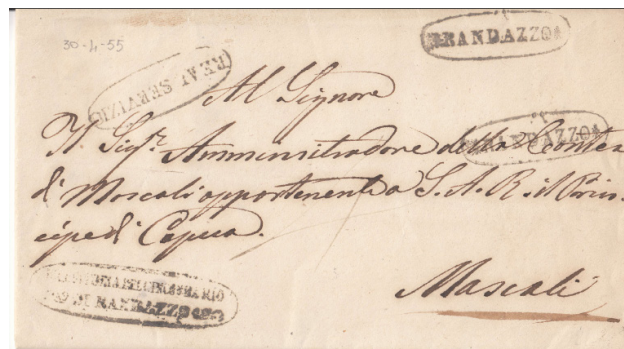 30-4-55
RANDAZZO
REAL SERVIZIO
Al Signore
RANDAZZO
Il Sigr. Amministradore della Contea
di Mascali appartenente a S. A. R. il Prin-
cipe di Capua.
DI RANDAZZO
Mascali